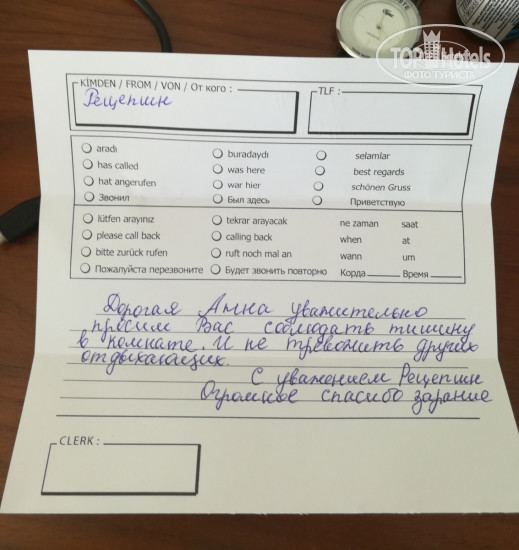 KİMDEN / FROM / VON / От кого :
Рецепшн
TLF :
aradı
has called
hat angerufen
Звонил
buradaydı
was here
war hier
Был здесь
selamlar
best regards
schönen Gruss
Приветствую
lütfen arayınız
please call back
bitte zurück rufen
Пожалуйста перезвоните
tekrar arayacak
calling back
ruft noch mal an
Будет звонить повторно
ne zaman saat
when at
wann um
Корда Время
Дорогая Анна уважительно
просим Вас соблюдать тишину
в комнате. И не тревожить других
отдыхающих.
С уважением Рецепшн
Огромное спасибо зарание
CLERK :
TOPHotels
ФОТО ТУРИСТА